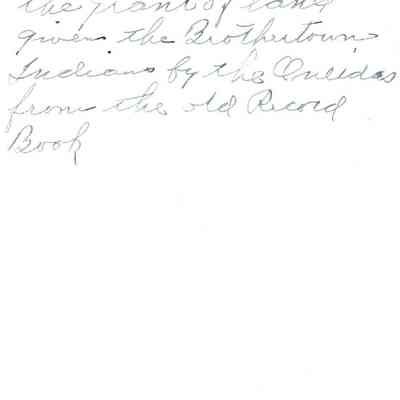 the grant of land
given the Brothertown
Indians by the Oneidas
from the old Record
Book